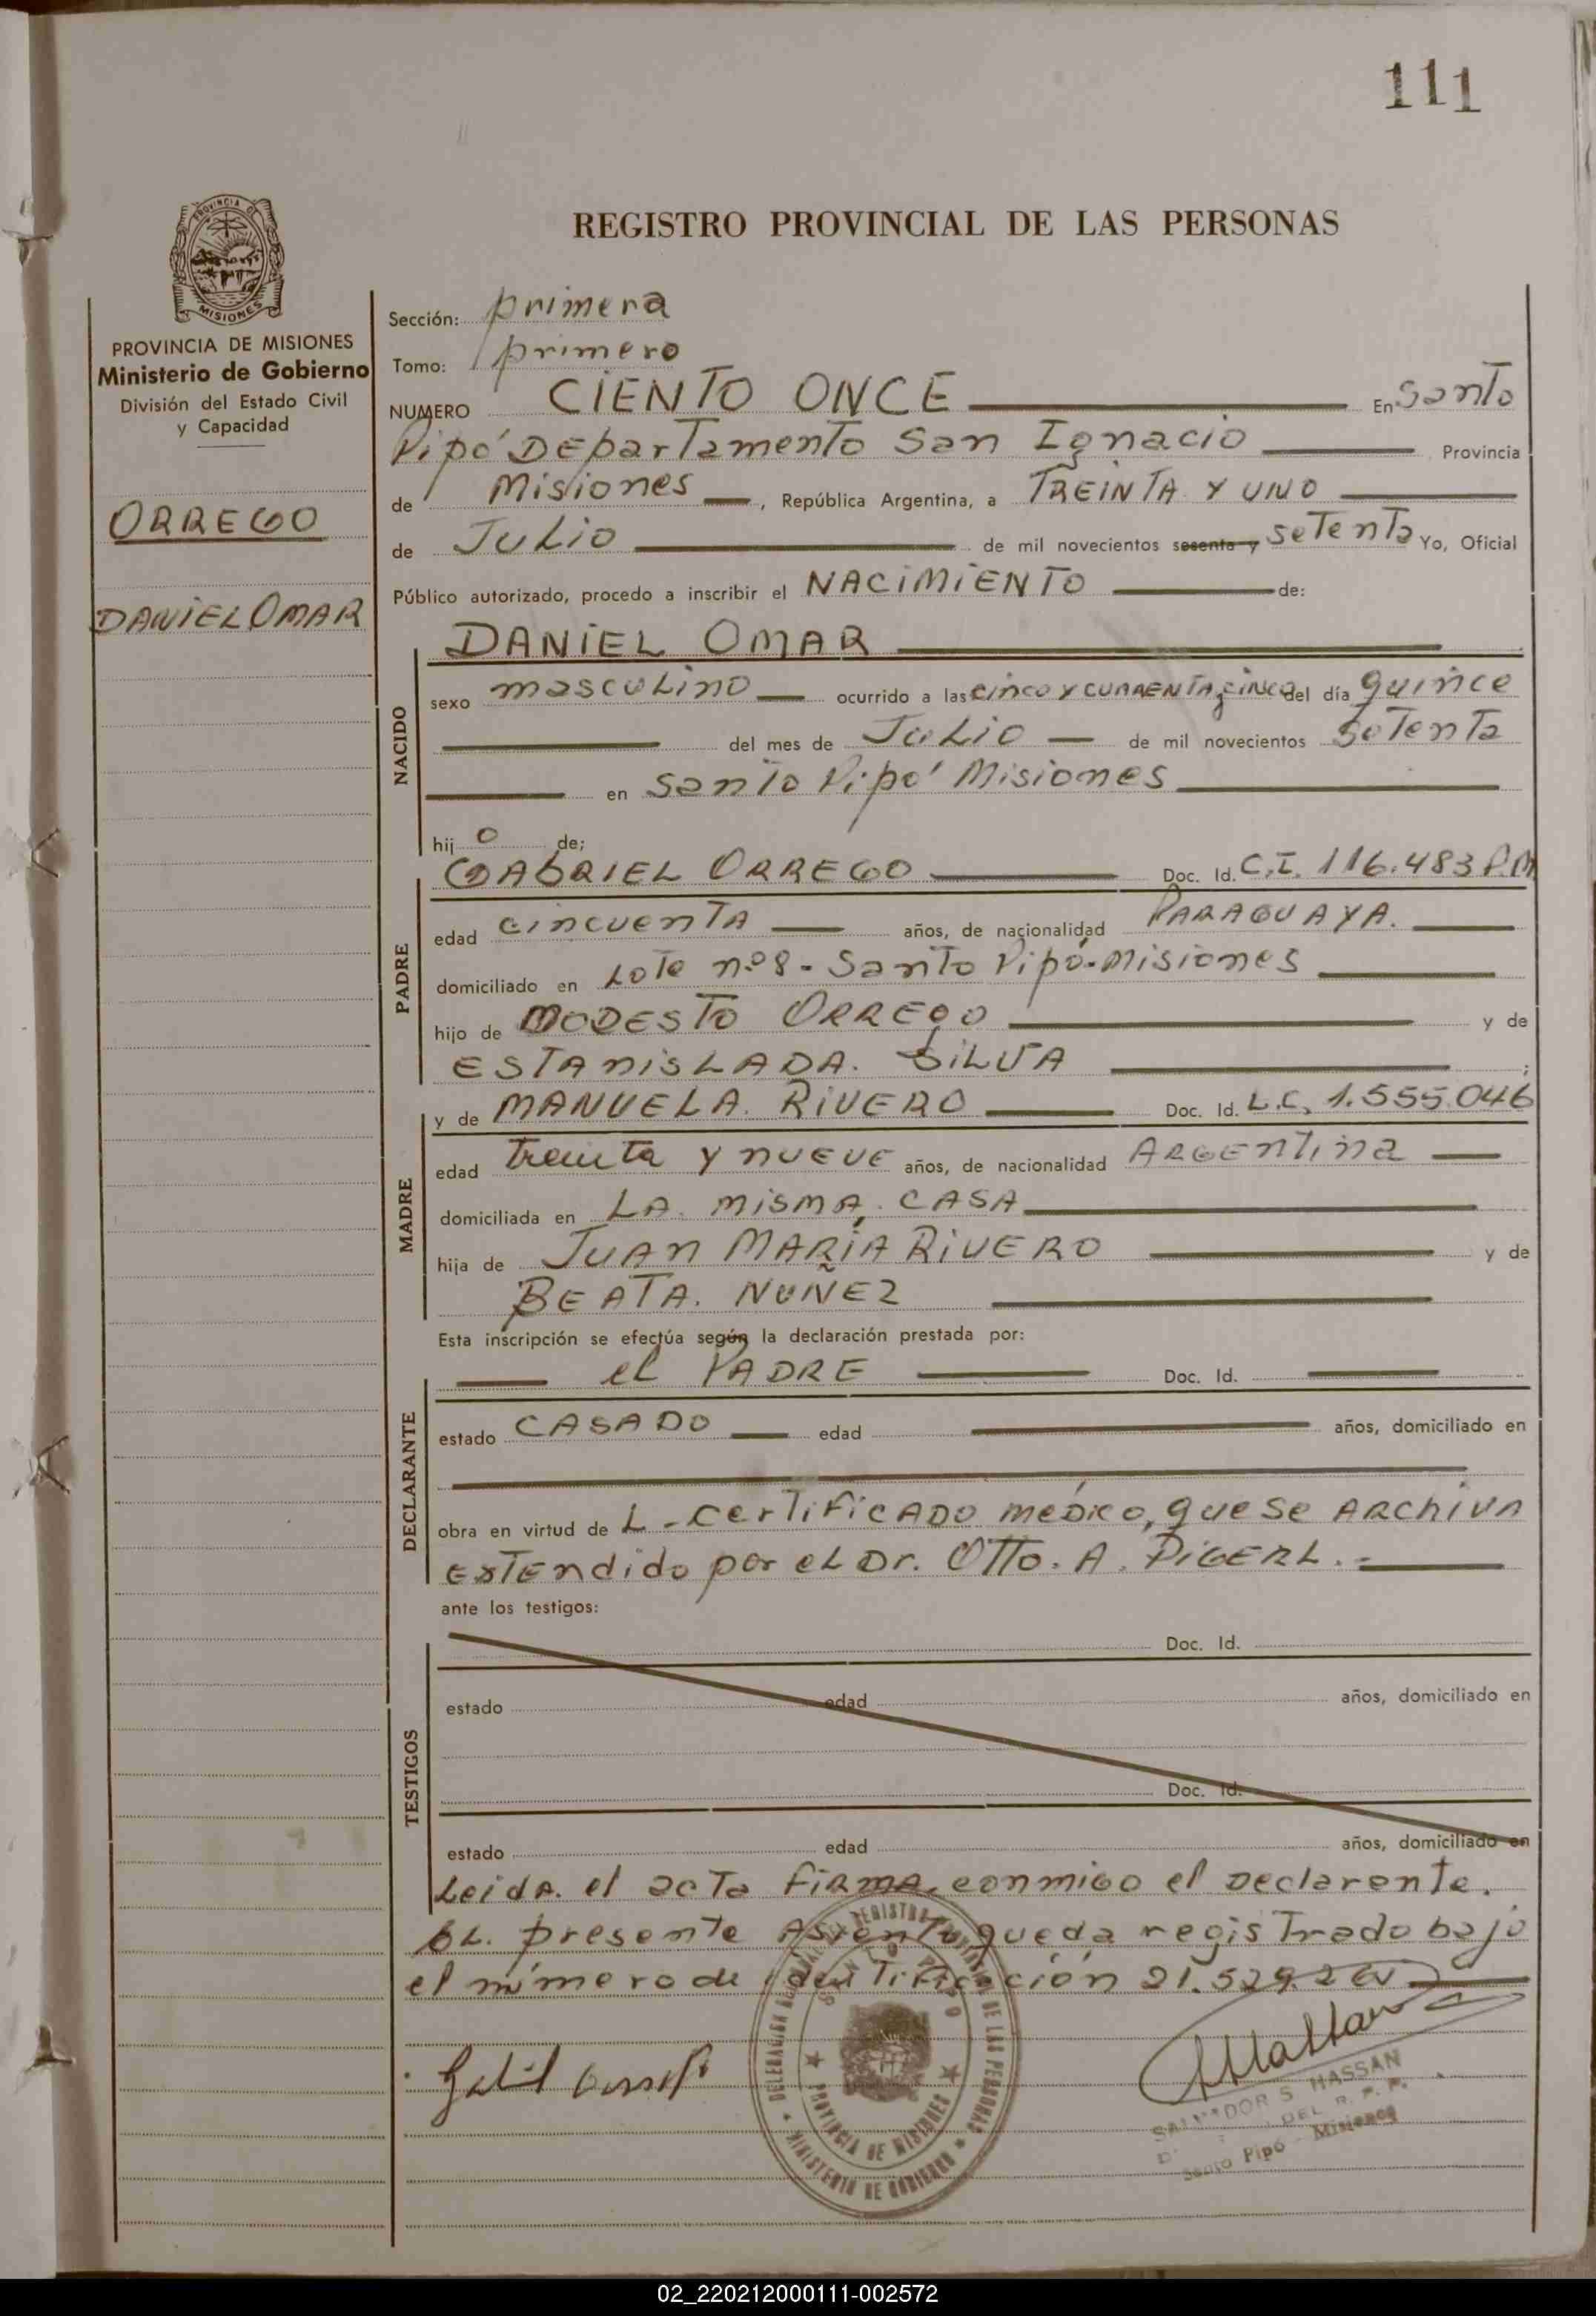 111
REGISTRO PROVINCIAL DE LAS PERSONAS
PROVINCIA DE
MISIONES
PROVINCIA DE MISIONES
Ministerio de Gobierno
División del Estado Civil
y Capacidad
ORREGO
DANIEL OMAR
Sección: primera
Tomo: primero
NUMERO CIENTO ONCE En Santo
Pipó Departamento San Ignacio Provincia
de Misiones, República Argentina, a TREINTA Y UNO
de Julio de mil novecientos sesenta y setenta Yo, Oficial
Público autorizado, procedo a inscribir el NACIMIENTO de:
NACIDO
DANIEL OMAR
sexo masculino ocurrido a las cinco y cuarenta y cinco del día quince
del mes de Julio de mil novecientos setenta
en Santo Pipó Misiones
hijo de;
PADRE
GABRIEL ORREGO Doc. Id. C.I. 116.483 P.M
edad cincuenta años, de nacionalidad PARAGUAYA.
domiciliado en Lote nº 8 - Santo Pipó - Misiones
hijo de MODESTO ORREGO y de
ESTANISLADA. SILVA ;
MADRE
y de MANUELA. RIVERO Doc. Id. L.C. 1.555.046
edad treinta y nueve años, de nacionalidad ARGENTINA
domiciliada en LA. MISMA. CASA
hija de JUAN MARÍA RIVERO y de
BEATA. NUÑEZ
Esta inscripción se efectúa según la declaración prestada por:
DECLARANTE
el PADRE Doc. Id.
estado CASADO edad años, domiciliado en
obra en virtud de L - certificado médico, que se archiva
extendido por el Dr. Otto. A. PIGERL. -
ante los testigos:
TESTIGOS
Doc. Id.
estado edad años, domiciliado en
Doc. Id.
estado edad años, domiciliado en
Leida. el acta firma, conmigo el declarante.
EL. presente Asiento queda registrado bajo
el número de identificación 21.529.2
DELEGACIÓN REGISTRO DE LAS PERSONAS
MINISTERIO DE GOBIERNO
PROVINCIA DE MISIONES
SALVADOR S. HASSAN
DEL R. P. P.
Santo Pipó - Misiones
02_220212000111-002572